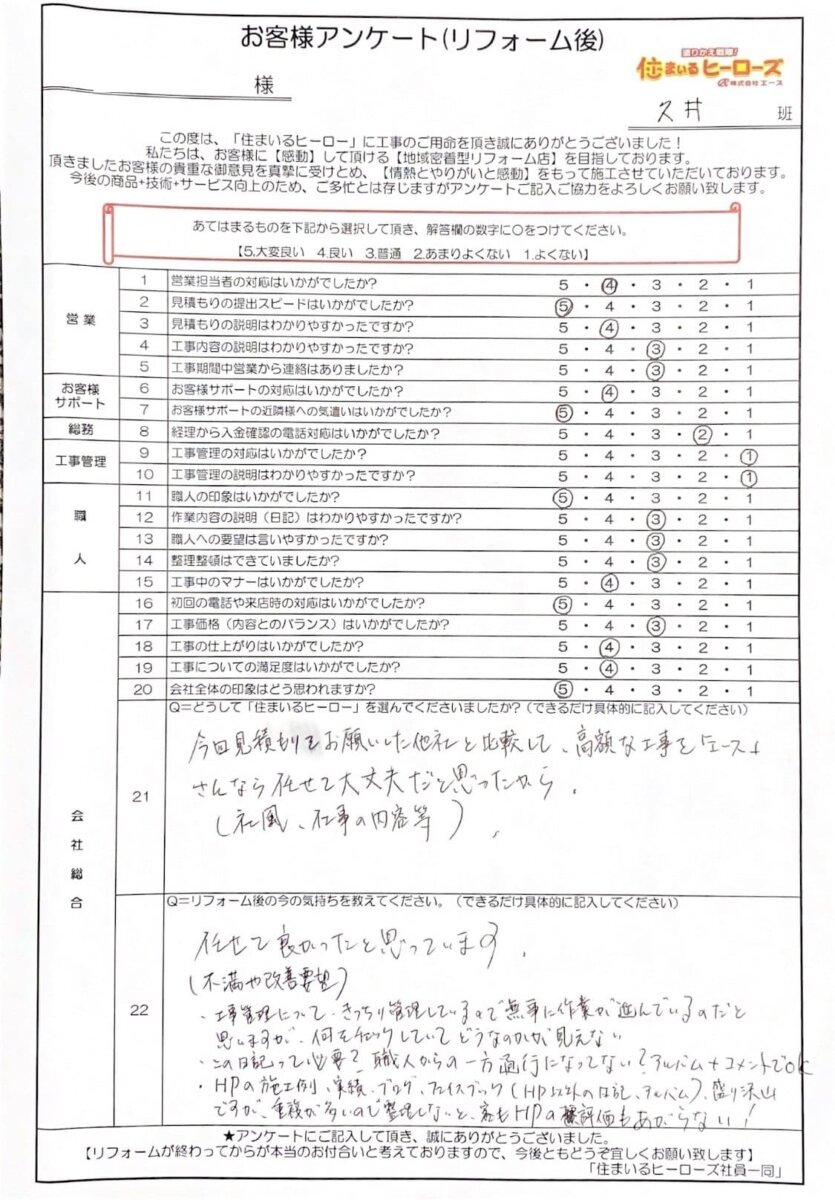 お客様アンケート(リフォーム後)
様
塗りかえ戦隊!
住まいるヒーローズ
株式会社エース
久井 班
この度は、「住まいるヒーロー」に工事のご用命を頂き誠にありがとうございました!
私たちは、お客様に【感動】して頂ける【地域密着型リフォーム店】を目指しております。
頂きましたお客様の貴重な御意見を真摯に受けとめ、【情熱とやりがいと感動】をもって施工させていただいております。
今後の商品+技術+サービス向上のため、ご多忙とは存じますがアンケートご記入ご協力をよろしくお願い致します。
あてはまるものを下記から選択して頂き、解答欄の数字に○をつけてください。
【5.大変良い 4.良い 3.普通 2.あまりよくない 1.よくない】
営業
1 営業担当者の対応はいかがでしたか? 5・4・3・2・1
2 見積もりの提出スピードはいかがでしたか? 5・4・3・2・1
3 見積もりの説明はわかりやすかったですか? 5・4・3・2・1
4 工事内容の説明はわかりやすかったですか? 5・4・3・2・1
5 工事期間中営業から連絡はありましたか? 5・4・3・2・1
お客様サポート
6 お客様サポートの対応はいかがでしたか? 5・4・3・2・1
7 お客様サポートの近隣様への気遣いはいかがでしたか? 5・4・3・2・1
総務
8 経理から入金確認の電話対応はいかがでしたか? 5・4・3・2・1
工事管理
9 工事管理の対応はいかがでしたか? 5・4・3・2・1
10 工事管理の説明はわかりやすかったですか? 5・4・3・2・1
職人
11 職人の印象はいかがでしたか? 5・4・3・2・1
12 作業内容の説明(日記)はわかりやすかったですか? 5・4・3・2・1
13 職人への要望は言いやすかったですか? 5・4・3・2・1
14 整理整頓はできていましたか? 5・4・3・2・1
15 工事中のマナーはいかがでしたか? 5・4・3・2・1
会社総合
16 初回の電話や来店時の対応はいかがでしたか? 5・4・3・2・1
17 工事価格(内容とのバランス)はいかがでしたか? 5・4・3・2・1
18 工事の仕上がりはいかがでしたか? 5・4・3・2・1
19 工事についての満足度はいかがでしたか? 5・4・3・2・1
20 会社全体の印象はどう思われますか? 5・4・3・2・1
21
Q=どうして「住まいるヒーロー」を選んでくださいましたか?(できるだけ具体的に記入してください)
今回見積もりをお願いした他社と比較して、高額な工事を「エース」
さんなら任せて大丈夫だと思ったから。
(社風、仕事の内容等)。
22
Q=リフォーム後の今の気持ちを教えてください。(できるだけ具体的に記入してください)
任せて良かったと思っています。
(不満や改善要望)
・工事管理について・きっちり管理しているので無事に作業が進んでいるのだと
思いますが、何をチェックしていてどうなのかが見えない
・この日記って必要?職人からの一方通行になってない?アルバム+コメントでOK
・HPの施工例、実績、ブログ、フェイスブック(HP以外の日記、アルバム)、盛り沢山
ですが、重複が多いので整理しないと、客もHPの評価もあがらない!
★アンケートにご記入して頂き、誠にありがとうございました。
【リフォームが終わってからが本当のお付合いと考えておりますので、今後ともどうぞ宜しくお願い致します】
「住まいるヒーローズ社員一同」